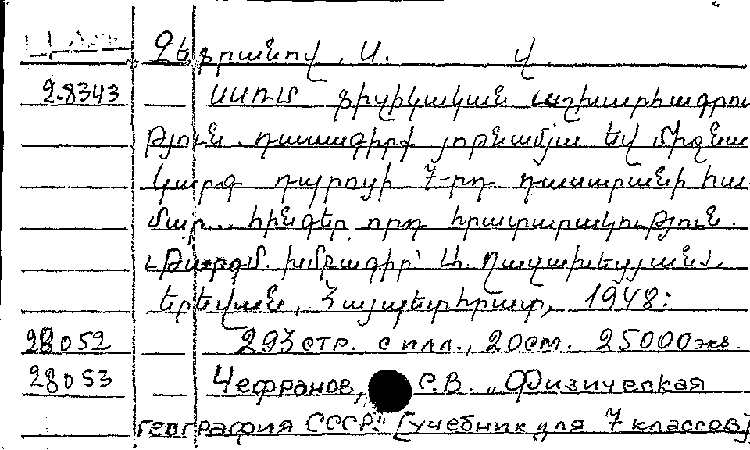 Չեֆրանով, Ս. Վ
28343 ՍՍՌՄ ֆիզիկական աշխարհագրու
թյուն. դասագիրք յոթնամյա եվ միջնա
կարգ դպրոցի 7-րդ դասարանի հա
մար. հինգերորդ հրատարակություն.
Թարգմ. խմբագիր՝
Երեվան, Հայպետհրատ, 1948:
28052 293 стр. с илл., 20 см. 25000 экз.
28053 Чефранов, С.В. „Физическая
география СССР." [учебник для 7 классов]